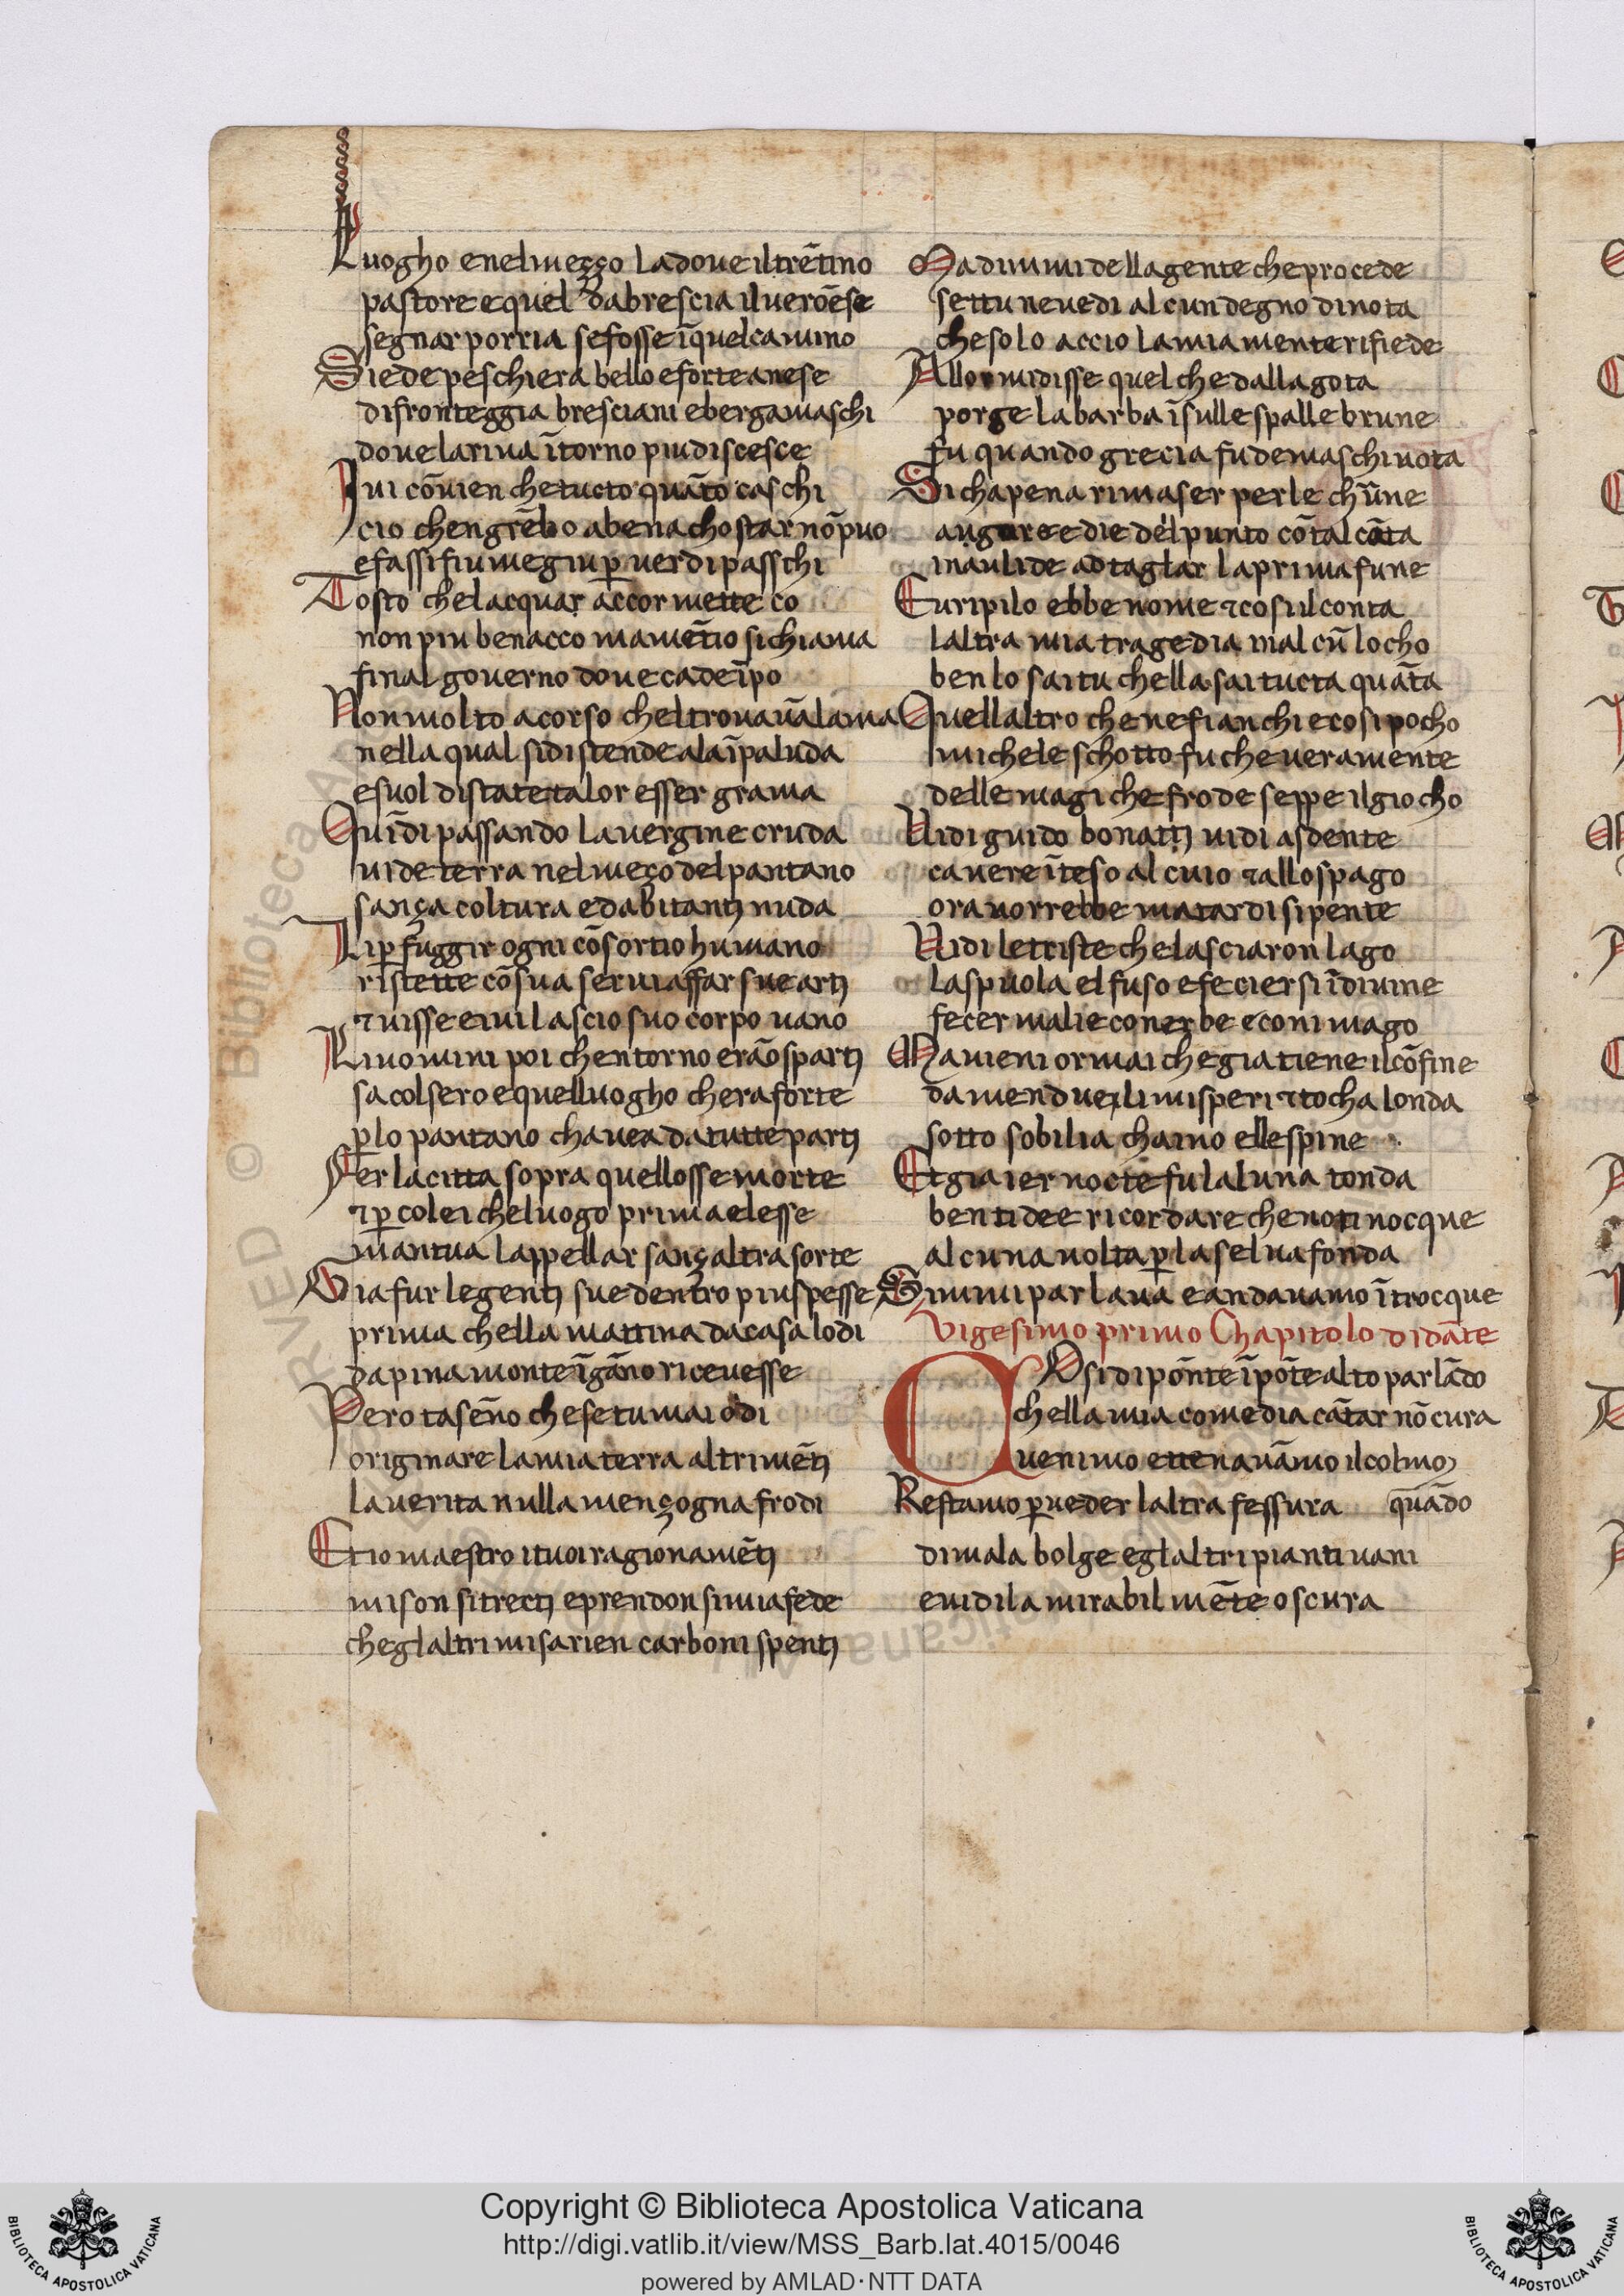 Luogho enelmeçço ladoue iltrētino
pastore equel dabrescia iluerōese
segnar porria sefosse īquelcamino
Siede peschiera bello eforte anese
difronteggia bresciani ebergamaschi
doue lariua ītorno piu discesce
Iui cōuien chetucto quāto caschi
cio chengrēbo abenacho star nō puo
efassi fiume giu ꝑ uerdi passchi
Tosto chelacquar accor mette co
non piu benacco mamētio sichiama
final gouerno doue cade īpo
Non molto a corso cheltroua ūa lama
nella qual sidistende ala īpaluda
esuol distatettalor esser grama
Quīdi passando lauergine cruda
uide terra nel meço del pantano
sança coltura edabitanti nuda
Li ꝑ fuggir ogni cōsortio humano
ristette cōsua serui affar sue arti
⁊uisse eiui lascio suo corpo uano
Li uomini poi chentorno erāo sparti
sa colsero equelluogho chera forte
ꝑlo pantano chauea da tutte parti
Fer lacitta sopra quellosse morte
⁊ꝑ colei cheluogo prima elesse
mantua lappellar sançaltra sorte
Gia fur legenti sue dentro piu spesse
prima chella mattina dacasalodi
dapinamonte īgāno riceuesse
Pero taseño chesetu mai odi
originare lamia terra altrimēti
lauerita nulla mençogna frodi
Et io maestro i tuoi ragionamēti
mison sitrecti eprendon simia fede
cheglaltri misarien carboni spenti
Ma dimmi dellagente che procede
settu neuedi alcun degno dinota
che solo accio lamia mente rifiede
Allor midisse quel che dalla gota
porge labarba īsulle spalle brune
fu quando grecia fu demaschi uota
Si chapena rimaser per le chūne
augure e die del punto cōtalcāta
inaulide ad taglar laprima fune
Euripilo ebbe nome ⁊cosi ilconta
laltra mia tragedia in alcū locho
ben lo sai tu chella sai tucta quāta
Quellaltro che nefianchi ecosi pocho
michele schotto fu che ueramente
delle magiche frode seppe ilgiocho
Uidi guido bonatti uidi asdente
cauere īteso al cuio ⁊allo spago
ora uorrebbe matardi sipente
Uidi letriste chelasciaron lago
laspuola el fuso efeciersi īdiuine
fecer malie con erbe econ imago
Ma uieni ormai che gia tiene ilcōfine
damendue li misperi ⁊tocha londa
sotto sobilia chaino ellespine
Et gia ier nocte fu laluna tonda
ben tidee ricordare che noti nocque
alcuna uolta ꝑ la selua fonda
Si mmi parlaua eandauamo ītrocque
Vigesimo primo Chapitolo didāte
COsi di pōnte īpōte alto parlādo
chella mia comedia cātar nō cura
uenimo ettenauāmo ilcolmo
Restamo ꝑ ueder laltra fessura quādo
dimala bolge eglaltri pianti uani
euidila mirabil mēte oscura
Copyright © Biblioteca Apostolica Vaticana
http://digi.vatlib.it/view/MSS_Barb.lat.4015/0046
powered by AMLAD·NTT DATA
BIBLIOTECA APOSTOLICA VATICANA
BIBLIOTECA APOSTOLICA VATICANA